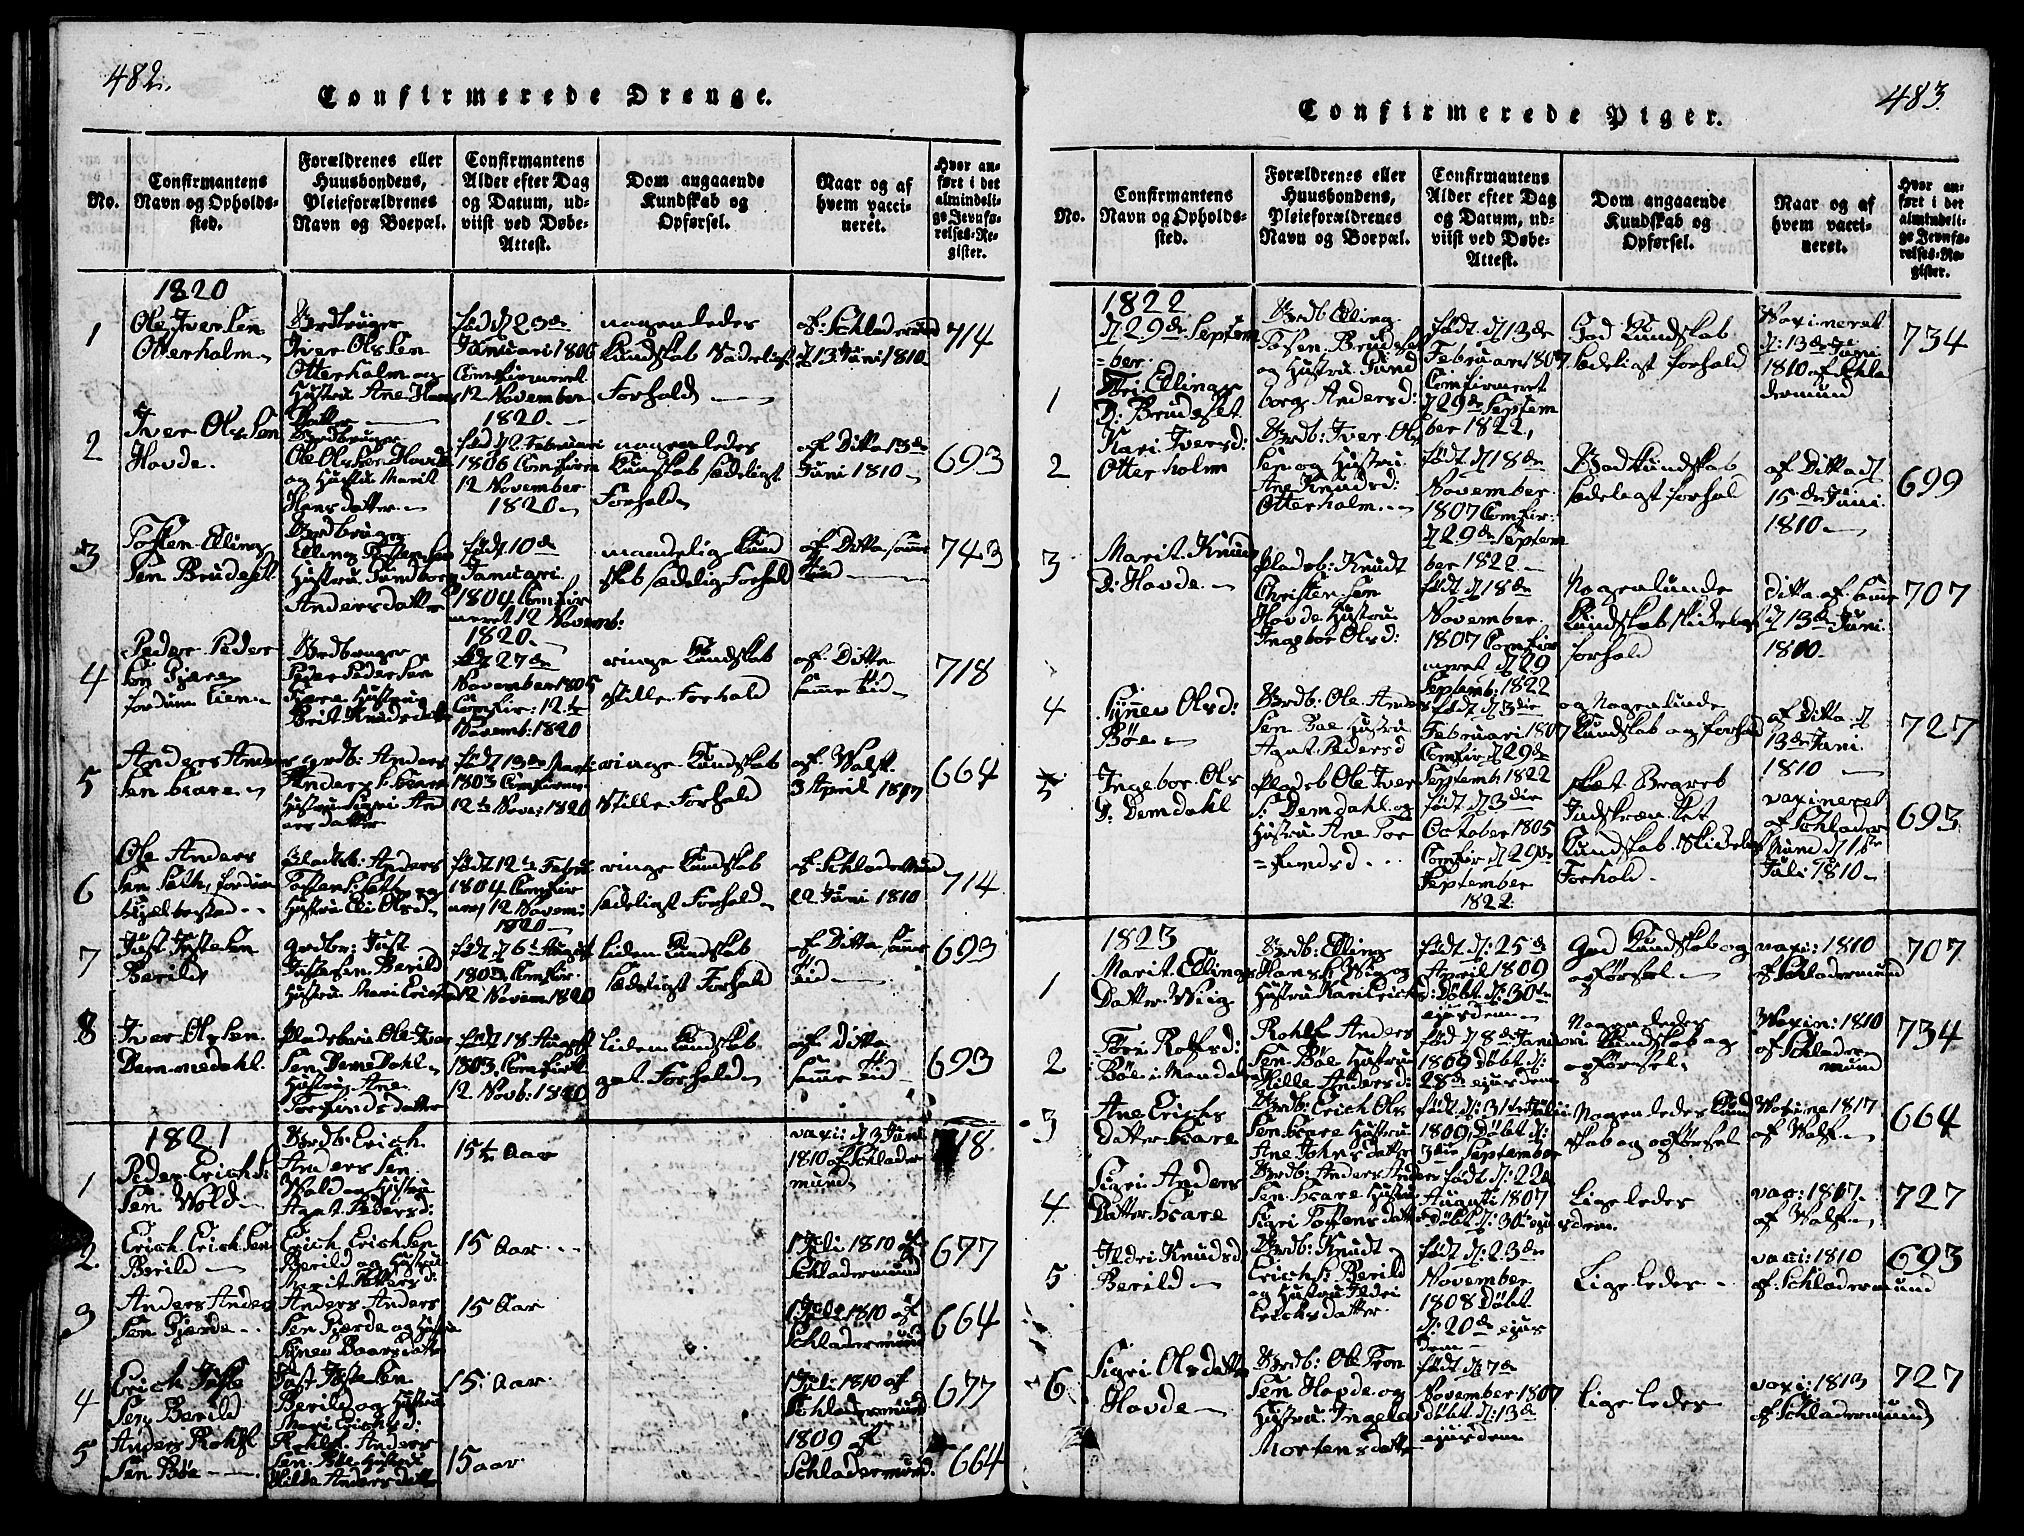 482.
Confirmerede Drenge.
No.
Confirmantens
Navn og Opholds-
sted.
Forældrenes eller
Huusbondens,
Pleieforældrenes
Navn og Boepæl.
Confirmantens
Alder efter Dag
og Datum, ud-
viist ved Døbe-
Attest.
Dom angaaende
Kundskab og
Opførsel.
Naar og af
hvem vacci-
neret.
Hvor an-
ført i det
almindeli-
ge Jevnfø-
relses-Re-
gister.
1820
1
Ole Iversen
Otterholm
Brdbruger
Iver Olsen
Otterholm og
Hustru Ane Hans
Datter
fød d 23de
Januari 1806
Comfirmeret
12 November
1820.
nogenledes
Kundskab Sædeligt
Forhold
af: Schladermund
d 13 Juni 1810
714
2
Iver Olsen
Hovde.
Brdbruger
Ole Olsen Hovde
og Hustru Marit
Hansdatter
fød d 2 Februari
1806 Comfirm
12 November
1820
nogenledes
Kundskab sædeligt
Forhold
af Ditta 13de
Juni 1810
693
3
Tosten Elling
Sen Brudeset
Brdbruger
Elling Tostensen
Hustru Gundborg
Andersdatter
født 10de
Januari
1804 Comfir
meret 12 Novemb:
1820.
maadelig Kund
skab sædelig Forhold
af Ditta samme
Tid
743
4
Peder Peder
Sen Gjære
fordum Eien
Brdbruger
Peder Pedersen
Gjære Hustrue
Brit Knudsdatter
fød d 27de
November 1805
Comfir: 12te
Novemb: 1820
ringe Kundskab
stille Forhold
af Ditta
samme Tid
718
5
Anders Anders
Sen Hoare
grdb: Anders
Anders S: Hoare
Hustru Sigri And
ersdatter
født 13de Marti
1803 Comfirme
12te Nove: 1820
ringe Kundskab
Stille Forhold
af Walft
3 April 1817
664
6
Ole Anders
Sen Sætt, fordum
Hjelbostad
Pladsb: Anders
Tosten S: Sætt
Hustru Eli Olsd
født 12te Febru
1804 Comfir
mer 12 Novem
1820
ringe Kundskab
sædeligt Forhold
af Schladermund
22 Juni 1810
714
7
Just Justesen
Berild
Gardbr: Just
Justesen Berild
Hustru Mari Ericksd
fød d 6te August
1803 Comfir.
12 Novem 1820
liden Kundskab
sædeligt Forhold
af Ditta samme
Tid
693
8
Iver Olsen
Demmedahl.
Pladsbru Ole Iver
Sen Deme Dahl
Hustru Ane
Torfindsdatter
født 18 August
1803, Comfirt
12. Novb: 1820
liden Kundskab
got Forhold
af Ditta
samme Tid
693
1821
1
Peder Erich
Sen Wold
Brdb: Erich
Andersen
Wold og Hustru
Agat Pedersd:
15½ Aar
vaxi: d 3 Juni
1810 af Schlader
mund
718.
2.
Erich Erichsen
Berild
Erich Erichsen
Berild og Hustru
Marit Pedersd:
15 Aar
1 Juli 1810 af
Schladermund
677
3
Anders Anders
Sen Gjerde
Anders Anders
Sen Gjerde og Hustru
Synev Baarsdatter
15 Aar
1 Juli 1810 af
Schladermund
664
4
Erich Juste
Sen Berild
Just Justesen
Berild og Hustru
Mari Erichsd:
15 Aar
1 Juli 1810 af
Schladermund
677
5
Anders Rohlf
Sen Bøe
Rohlf Anders
Sen Bøe Hustru
Hilde Andersdatter
15 aar
1809 af
Schladermund.
664
483
Confirmerede Piger.
No.
Confirmantens
Navn og Opholds-
sted.
Forældrenes eller
Huusbondens,
Pleieforældrenes
Navn og Borpæl.
Confirmantens
Alder efter Dag
og Datum, ud-
viist ved Døbe-
Attest.
Dom angaaende
Kundskab og
Opførsel.
Naar og af
hvem vacci-
neret.
Hvor an-
ført i det
almindeli-
ge Jevnfø-
relses-Re-
gister.
1822
d 29de Septem
=ber.
1
Ellings
D: Brudeset
Brdb: Elling
Tosen Brudeset
og Hustru Gund
borg Andersd:
født d 13de
Februari 1807
Comfirmeret
d 29de Septem
ber 1822,
God Kundskab
sædeligt forhold
Vaxineret
d: 13de Juni
1810 af Schla
dermund
734
2
Kari Iversd:
Otterholm
Brdb: Iver Ol
Sen og Hustru
Ane Knudsd:
Otterholm.
født d 18de
November
1807 Comfir:
d 29de Septem
ber 1822
God Kundskab
sædeligt forhold
af Ditta d
15de Juni
1810
699
3
Marit Knuds
D: Hovde
Pladsb: Knudt
Christensen
Hovde Hustru
Ingebor Olsd:
født d 18de
November
1807 Comfir
meret d 29
Septemb: 1822
Nogenlunde
Kundskab skikkeligt
forhold
Ditta af samme
d 13de Juni
1810
707
4
Synev Olsd:
Bøe
Brdb: Ole Ander
Sen Bøe Hustru
Agat Pedersd
født d 3die
Februari 1807
Comfir d 29de
Septemb 1822
og Nogenlunde
Kundskab og forhold
af Ditta d
13de Juni
1810
727
5
Ingebor Ols
D: Demdahl
Pladsb Ole Iver
S: Demdahl og
Hustru Ane Tor
=findsd
født d 3die
October 1805
Comfir d 29de
September
1822.
slet Begreb
Indskrænket
Kundskab. Skikkeligt
Forhold
vaxineret
af Schlader
mund d 1ste
Juli 1810
693
1823
1
Marit Ellings
Datter Wiig
Brdb: Elling
Hans S: Wig og
Hustru Kari Erichs
født d: 25de
April 1809
d: Døbt d: 30te
ejusdem
God Kundskab og
opførsel
vaxi: 1810
af Schladermund
707
2
Rolfsd:
Bøe i Mandal
Rohlf Anders
Sen Bøe Hustru
Hille Andersd:
fød d 8de Janu
1809 Døbt d:
28de ejusdem
Nogenledes
Kundskab og
opførsel
Vaxin: 1810
af Schlader
mund
734
3
Ane Erichs
Datter Hoare
Brdb: Erich Ols
Sen Hoare Hustru
Ane Johnsdatter
født d: 31te Julii
1809, Døbt d:
3die September
Nogenledes Kund
skab og opførsel
Vaxine 1817
af Walft
664
4
Sigri Anders
Datter Hoare
Brdb: Anders Ander
Sen Hoare Hustru
Sigri Tostensdatter
født d: 22de
Augusti 1807
Døbt d: 30te ejus
dem.
Ligeledes
vax: 1817
af Walft
727
5
Ildri Knudsd
Berild
Brdb: Knudt
Erichs S: Berild
og Hustru Ildri
Erichsdatter
født d: 23de
November
1808 Døbt
d: 20de ejus
dem
Ligeledes
vaxi: 1810
af Schladermund
693
6
Sigri Olsdatter
Hovde
Brdb: Ole Tron
Sen Hovde og
Hustru Ingebor
Mortensdatter
født d 7de
November 1807
Døbt d: 13de
ejusdem
Ligeledes
vaxi: 1813
af Schladermund
727